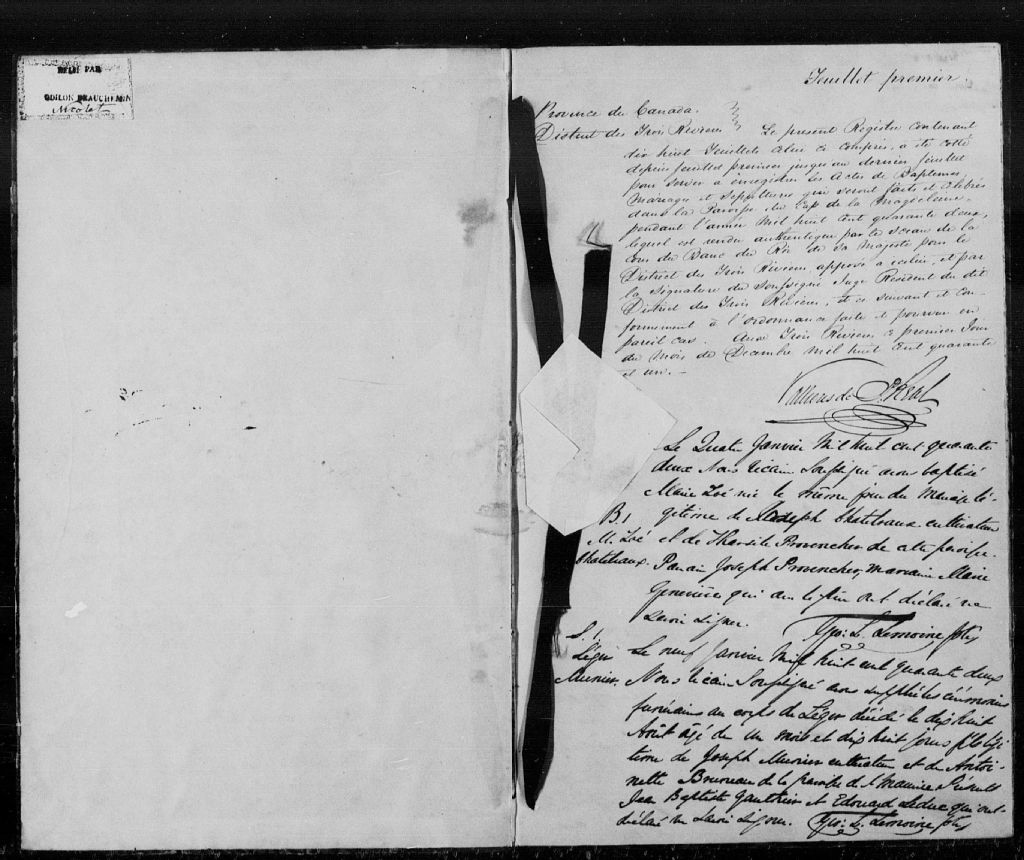 RELIÉ PAR
ODILON BEAUCHEMIN
Nicolet
Feuillet premier.
Province du Canada.
District des Trois Rivieres Le present Registre contenant
dix huit feuillets celui ci compris, a été cotté
depuis feuillet premier jusqu'au dernier feuillet
pour servir a enregistrer les Actes de Baptemes,
Mariages et Sepultures qui seront faits et célébrés
dans la Paroisse du Cap de la Magdeleine,
pendant l'année mil huit cent quarante deux,
lequel est rendu authentique par le sceau de la
cour du Banc du Roi de Sa Majesté pour le
District des Trois Rivieres, apposé a icelui, et par
la Signature du Soussigné Juge Resident du dit
District des Trois Rivieres, et ce suivant et con-
formement à l'ordonnance faite et pourvue en
pareil cas. Aux Trois Rivieres ce premier Jour
du mois de Decembre mil huit cent quarante
et un. —
Vallieres de St Real
Le Quatre Janvier mil huit cent quarante
deux Nous Vicaire Soussigné avons baptisé
Marie Zoé née le même jour du Mariage lé-
B. 1 gitime de Joseph Chatelraux cultivateur
M. Zoé et de Tharsile Provencher de cette paroisse.
Chatelraux. Parrain Joseph Provencher, marraine Marie
Geneviève qui ont déclaré ne
savoir signer. L. Lemoine ptre
S. 1. Le neuf Janvier mil huit cent quarante deux
Léger
Meunier. Nous Vicaire Soussigné avons suppléé les cérémonies
funéraires au corps de Léger décédé le dix huit
Août âgé de un mois et dix huit jours fils légi-
time de Joseph Meunier cultivateur et de Antoi-
nette Bruneau de la paroisse de St Maurice Présents
Jean Baptiste Gauthier et Edouard Leduc qui ont
déclaré ne savoir signer. L. Lemoine ptre